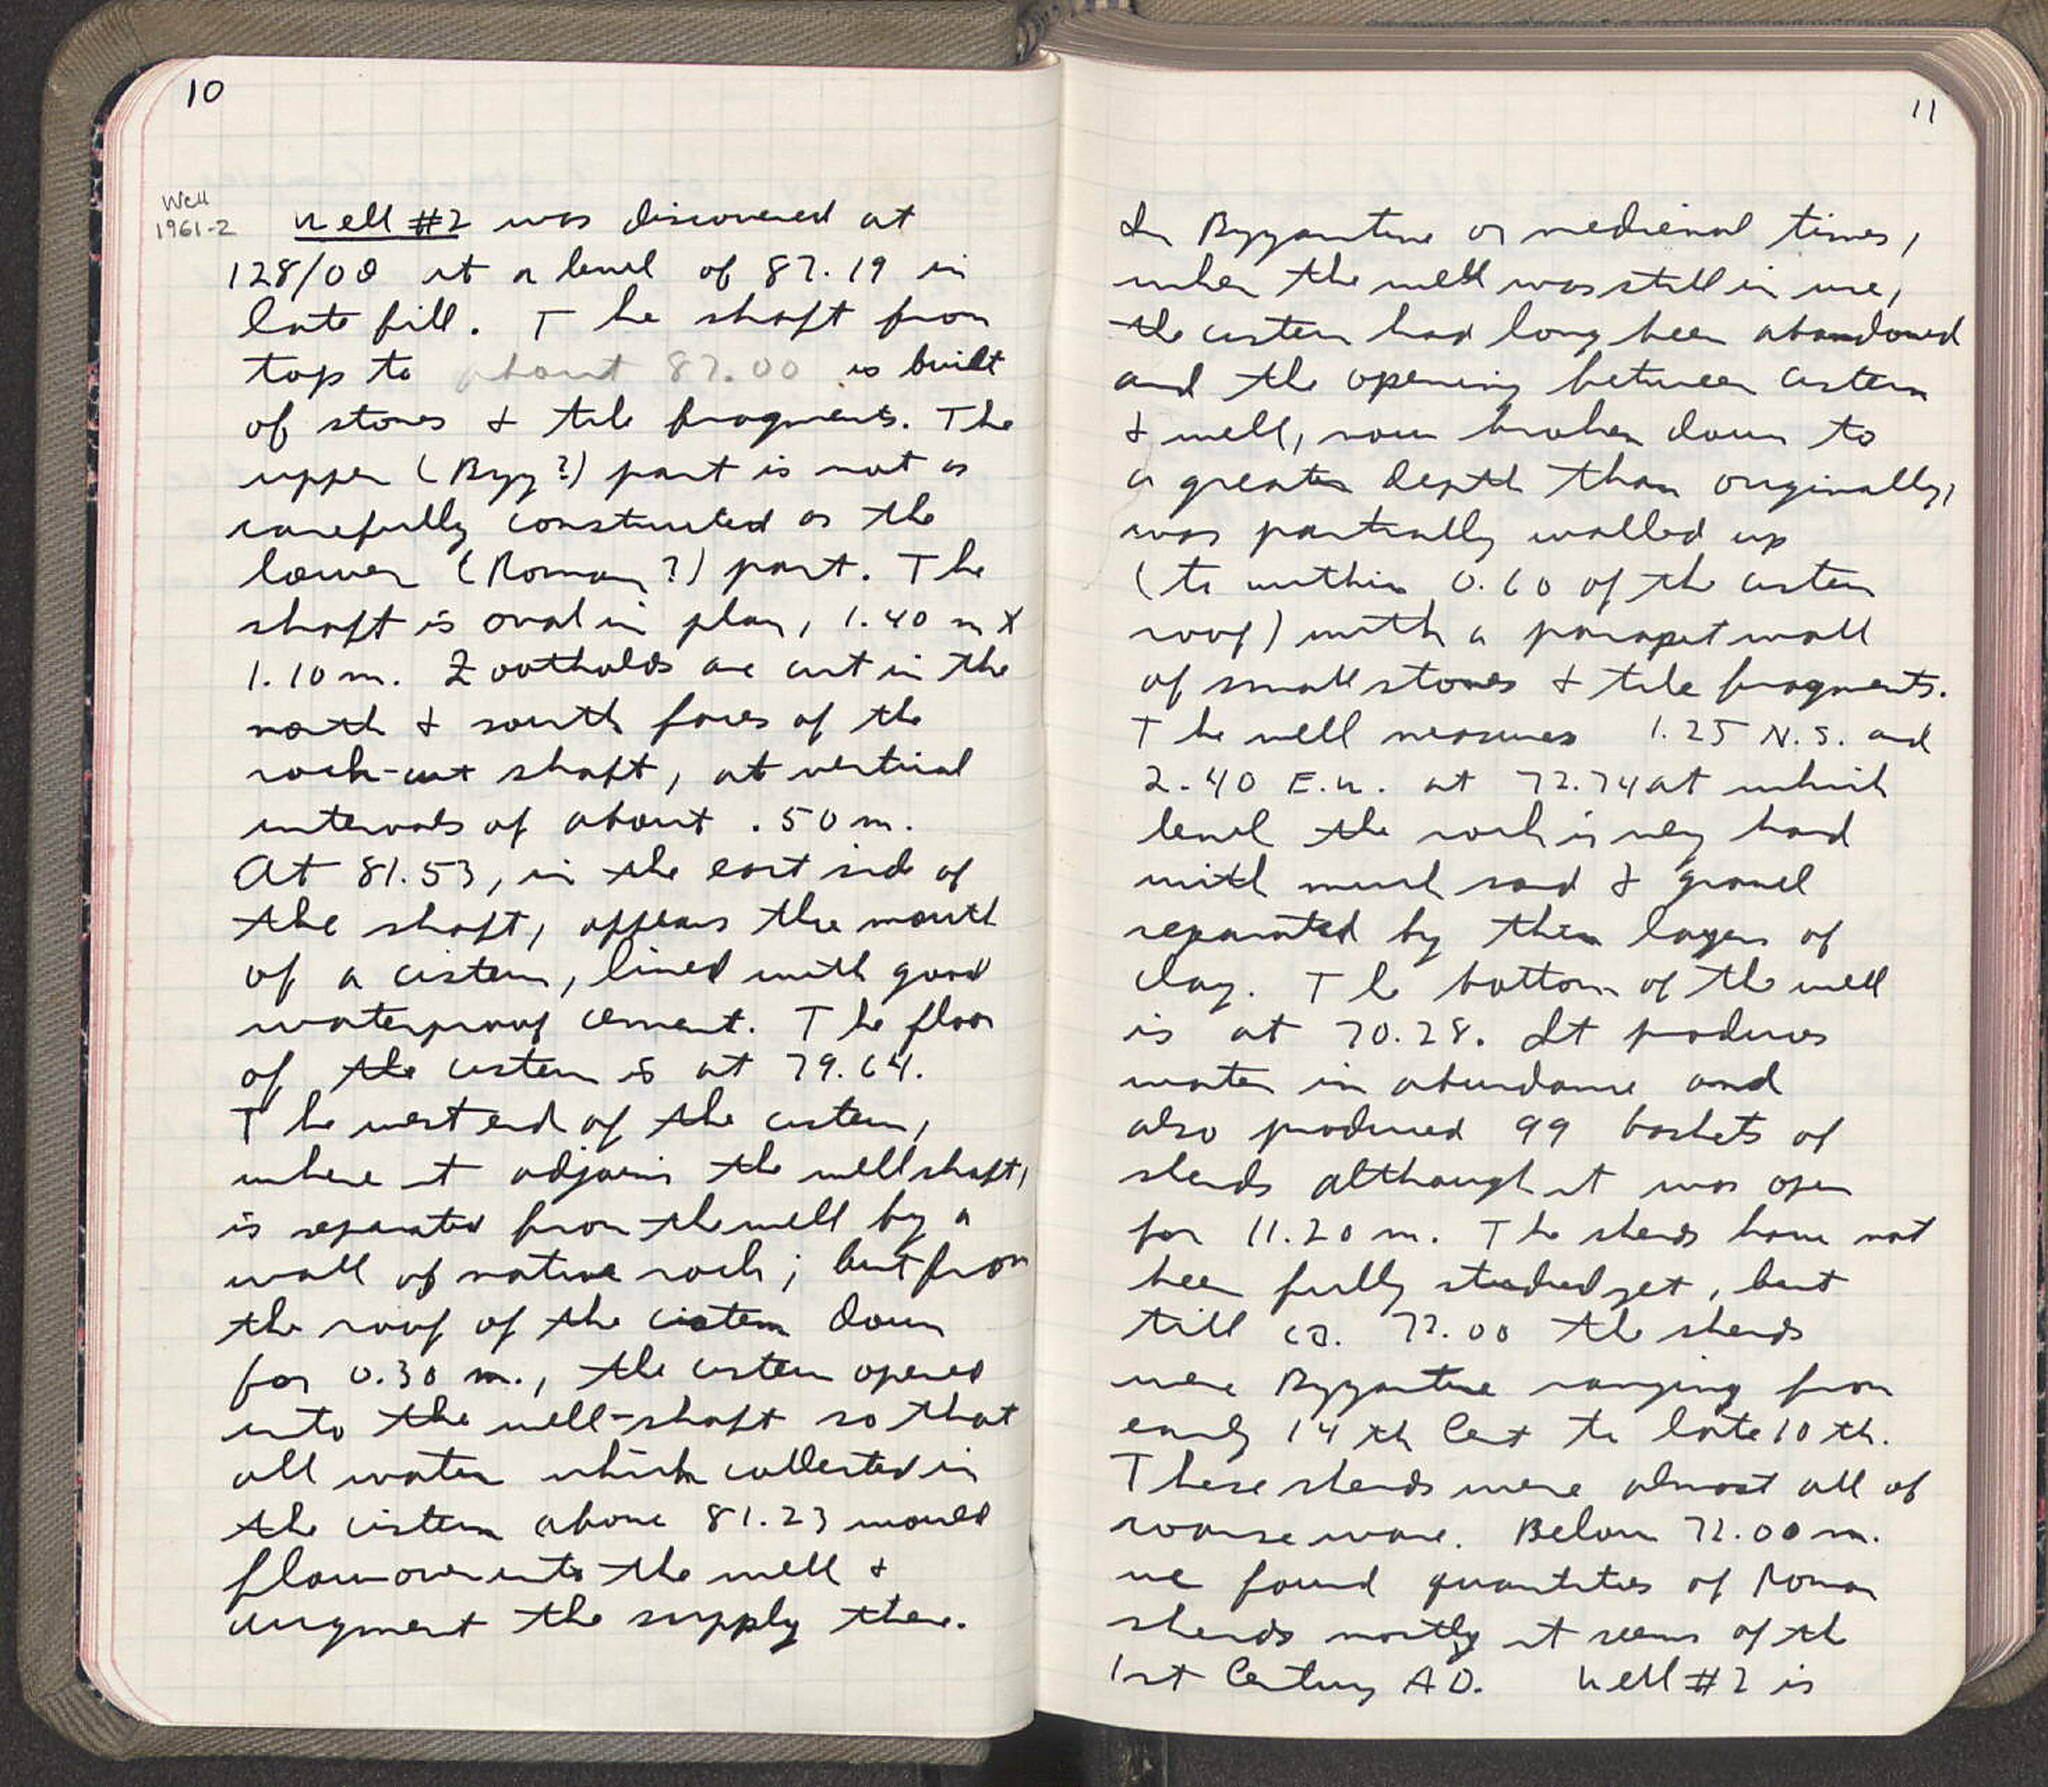 10
Well
1961-2
Well #2 was discovered at
128/00 at a level of 87.19 in
late fill. The shaft from
top to about 87.00 is built
of stones & tile fragments. The
upper (Byz?) part is not as
carefully constructed as the
lower (Roman?) part. The
shaft is oval in plan, 1.40 m x
1.10 m. Footholds are cut in the
north & south faces of the
rock-cut shaft, at vertical
intervals of about .50 m.
At 81.53, in the east side of
the shaft, appears the mouth
of a cistern, lined with good
waterproof cement. The floor
of the cistern is at 79.64.
The west end of the cistern,
where it adjoins the well shaft,
is separated from the well by a
wall of native rock; but from
the roof of the cistern down
for 0.30 m., the cistern opened
into the well-shaft so that
all water which collected in
the cistern above 81.23 would
flow over into the well &
augment the supply there.
11
In Byzantine or medieval times,
when the well was still in use,
the cistern had long been abandoned
and the opening between cistern
& well, now broken down to
a greater depth than originally,
was partially walled up
(to within 0.60 of the cistern
roof) with a parapet wall
of small stones & tile fragments.
The well measures 1.25 N.S. and
2.40 E.W. at 72.74 at which
level the rock is very hard
with much sand & gravel
separated by thin layers of
clay. The bottom of the well
is at 70.28. It produces
water in abundance and
also produced 99 baskets of
sherds although it was open
for 11.20 m. The sherds have not
been fully studied yet, but
till ca. 72.00 the sherds
were Byzantine ranging from
early 14th Cent to late 10th.
These sherds were almost all of
coarse ware. Below 72.00 m.
we found quantities of Roman
sherds mostly it seems of the
1st Century AD. Well #2 is